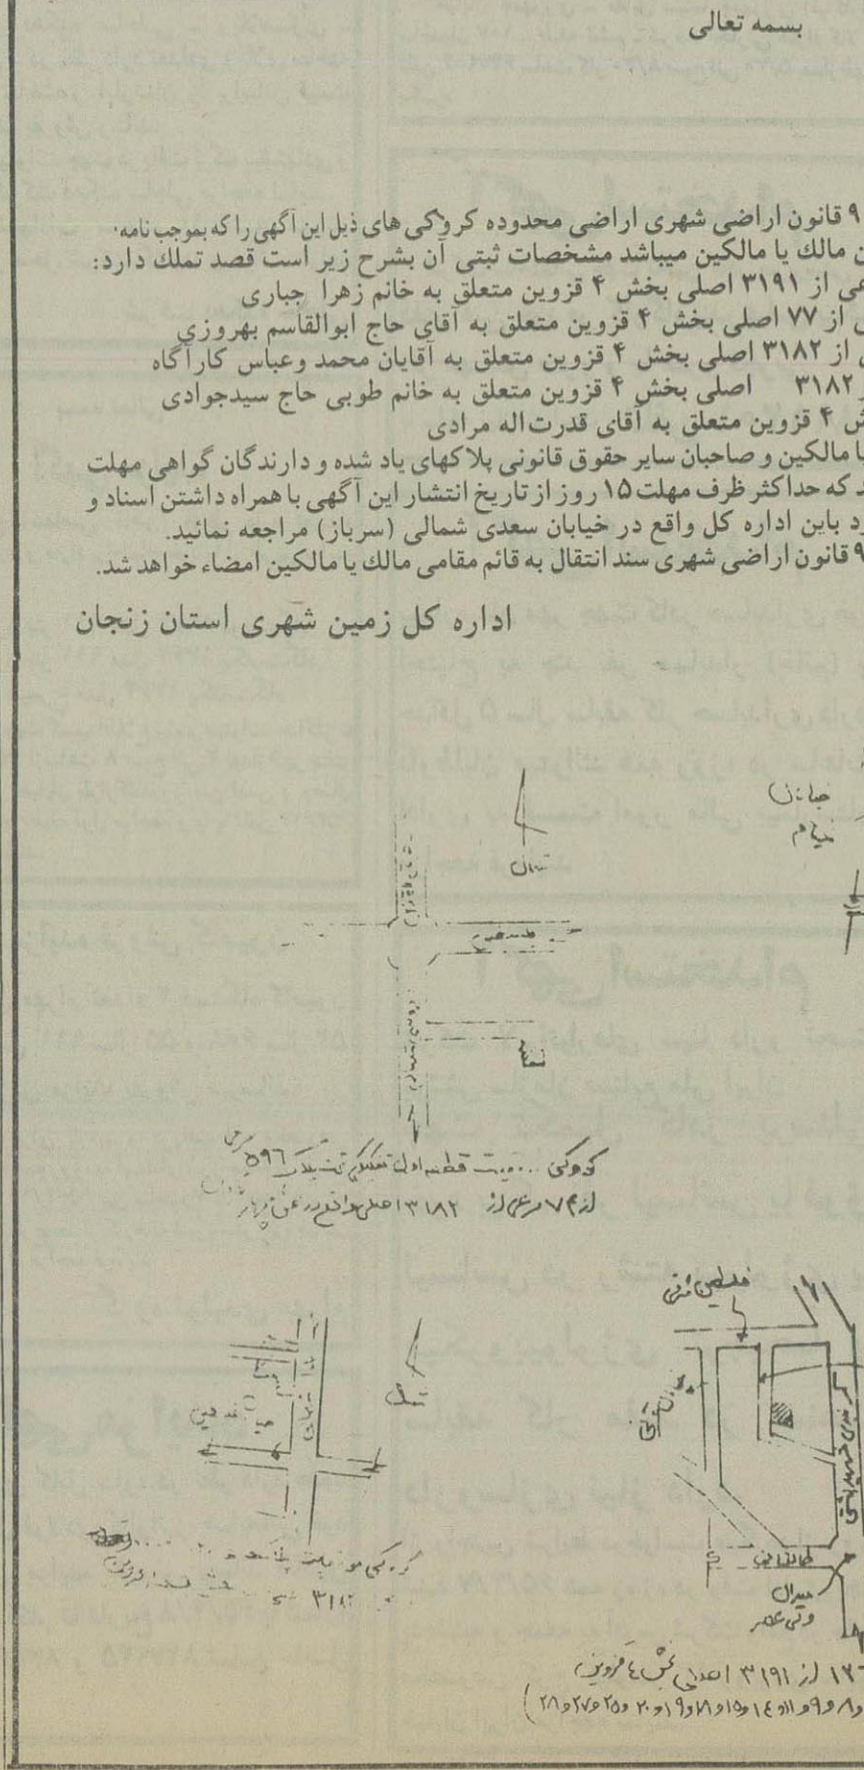 بسمه تعالی
۹ قانون اراضی شهری اراضی محدوده کروکی های ذیل این آگهی را که بموجب نامه
ن مالك یا مالکین میباشد مشخصات ثبتی آن بشرح زیر است قصد تملك دارد:
عی از ۳۱۹۱ اصلی بخش ۴ قزوین متعلق به خانم زهرا جباری
ی از ۷۷ اصلی بخش ۴ قزوین متعلق به آقای حاج ابوالقاسم بهروزی
ی از ۳۱۸۲ اصلی بخش ۴ قزوین متعلق به آقایان محمد وعباس کارآگاه
ر ۳۱۸۲ اصلی بخش ۴ قزوین متعلق به خانم طوبی حاج سیدجوادی
ش ۴ قزوین متعلق به آقای قدرت‌اله مرادی
یا مالکین و صاحبان سایر حقوق قانونی پلاکهای یاد شده و دارندگان گواهی مهلت
د که حداکثر ظرف مهلت ۱۵ روز از تاریخ انتشار این آگهی با همراه داشتن اسناد و
رد باین اداره کل واقع در خیابان سعدی شمالی (سرباز) مراجعه نمائید.
۹ قانون اراضی شهری سند انتقال به قائم مقامی مالك یا مالکین امضاء خواهد شد.
اداره کل زمین شهری استان زنجان
خیابان
خیام
شمال
کروکی موقعیت قطعه اول تفکیکی تحت پلاک ۵۹۶ فرعی
از ۷۴ فرعی از ۳۱۸۲ اصلی واقع در
فلسطین شرقی
شمال
طالقانی
میدان
ولی عصر
کروکی موقعیت پلاک
۳۱۸۲
از ۳۱۹۱ اصلی بخش ٤ قزوین
و۸ و۹ و۱۱و ۱٤ و۱۵ و۱۸ و۱۹ و ۲۰ و۲۵ و۲۷ و ۲۸)